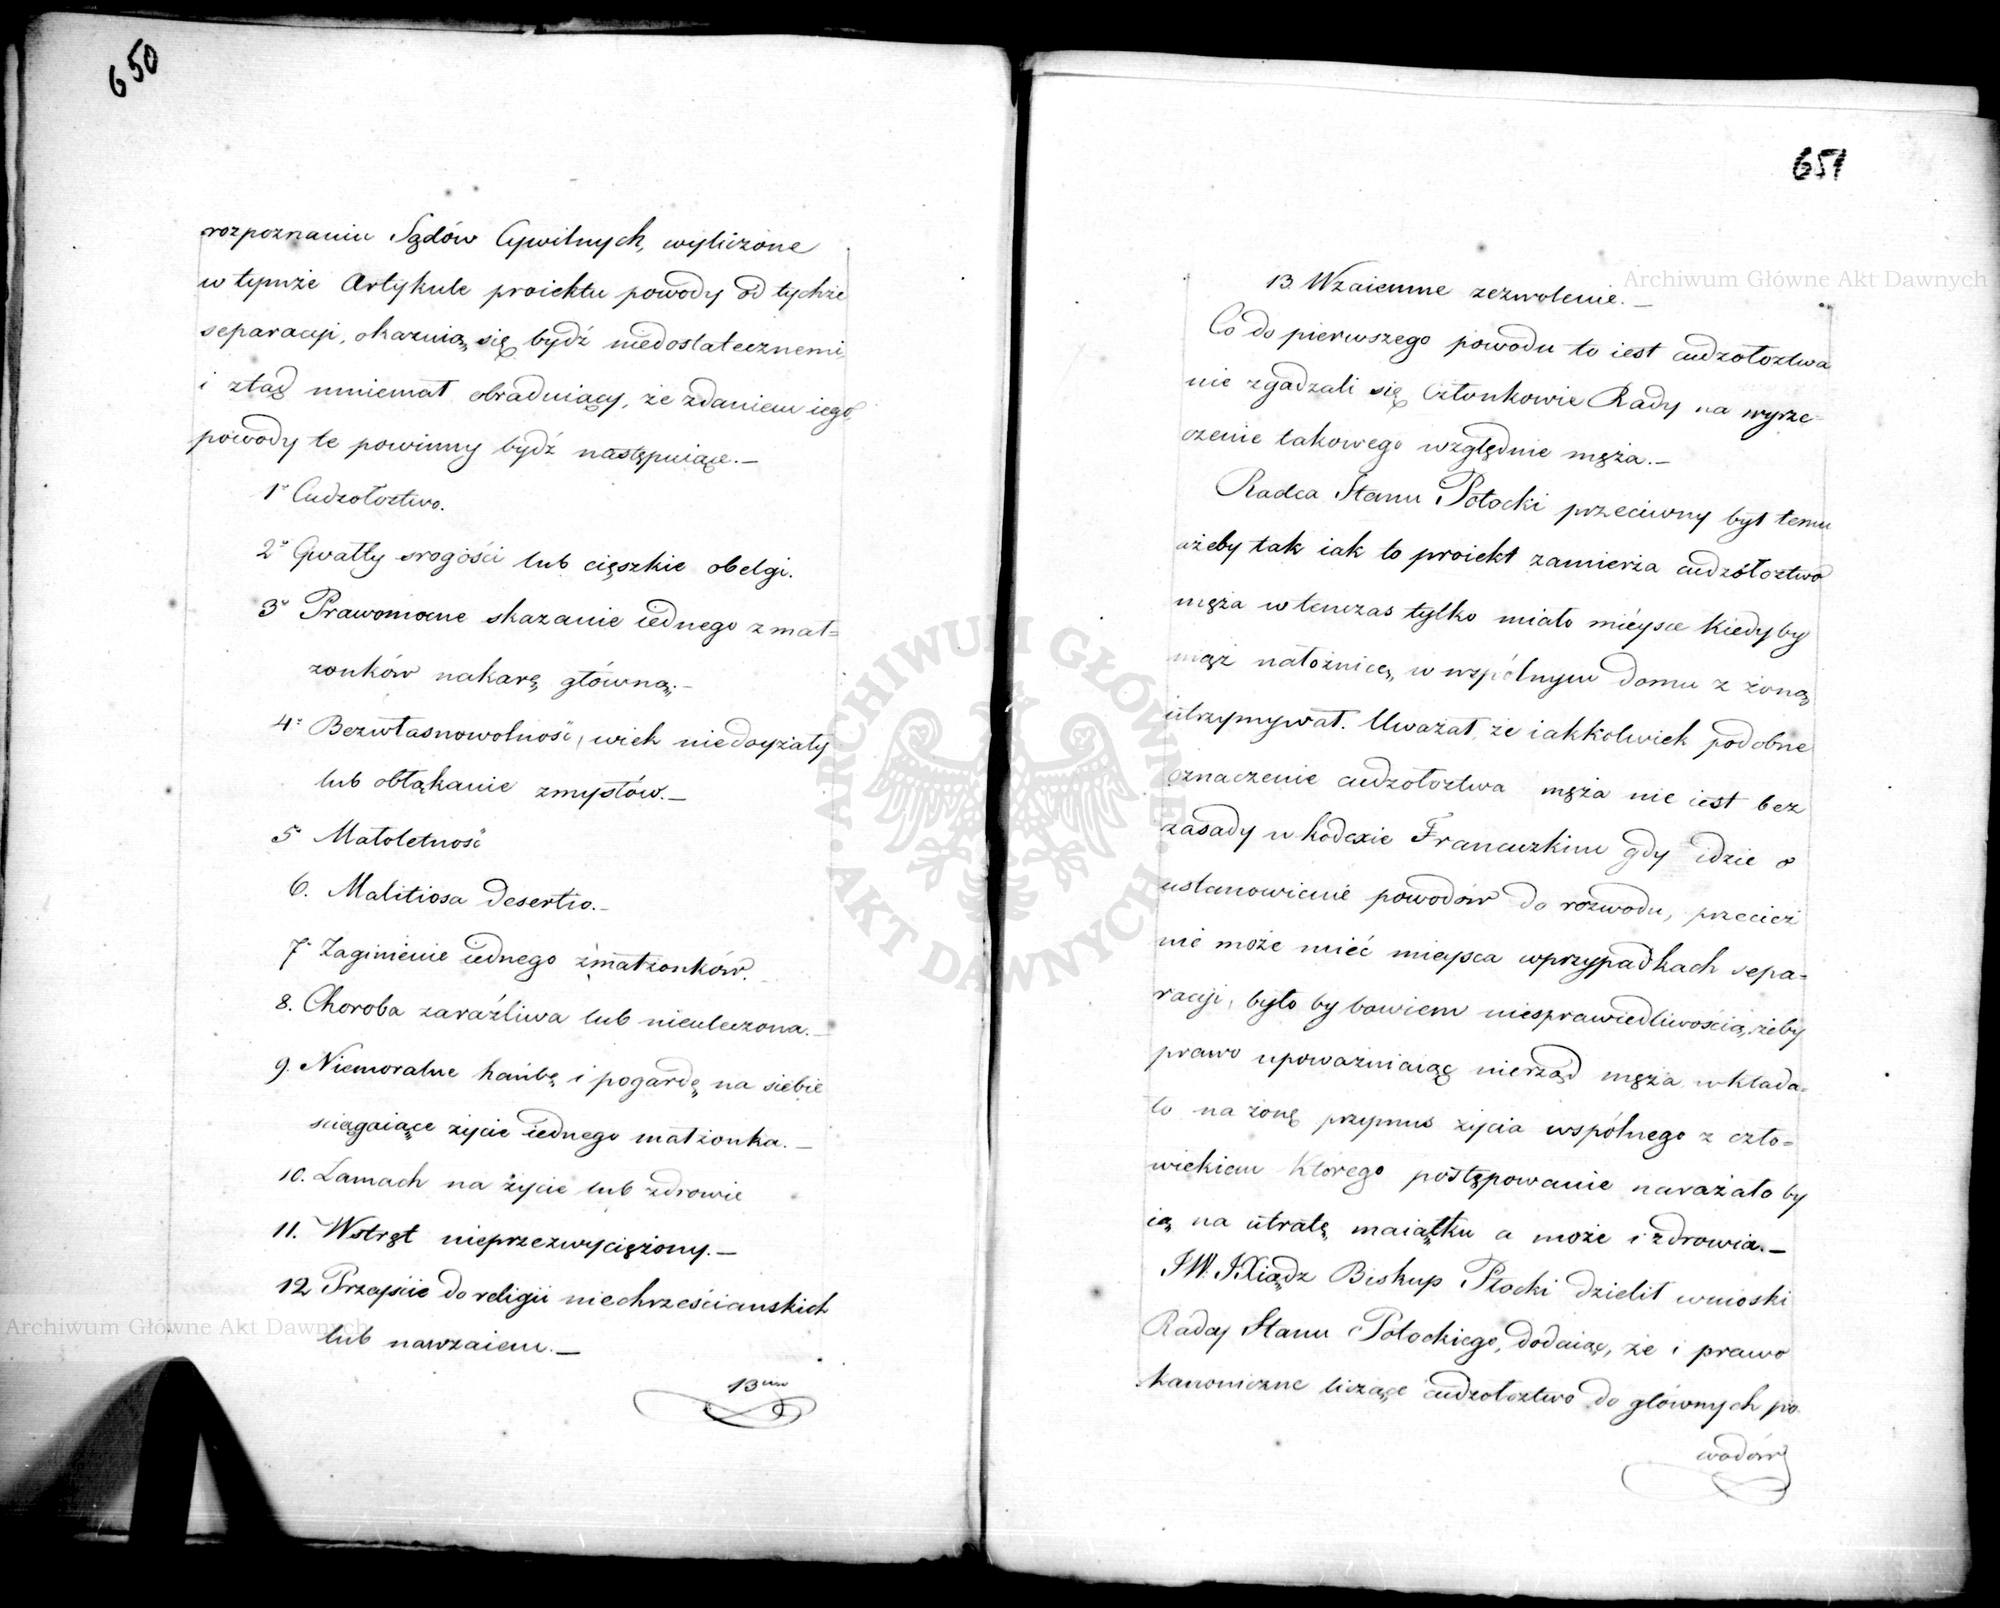 650
rozpoznaniu Sądów Cywilnych, wyliczone
w tymże Artykule proiektu powody od tychże
separacyi, okazuią się bydź niedostatecznemi
i ztąd mniemał obraduiący, że zdaniem iego,
powody te powinny bydź następuiące.—
1° Cudzołoztwo.
2° Gwałty srogości lub cięszkie obelgi.
3° Prawomocne skazanie iednego z mał=
żonków na karę główną.—
4° Bezwłasnowolność, wiek niedoyżały
lub obłąkanie zmysłów.—
5° Małoletność
6. Malitiosa desertio.—
7° Zaginienie iednego z małżonków.—
8. Choroba zaraźliwa lub nieuleczona.—
9. Niemoralne hańbę i pogardę na siebie
sciągaiące życie iednego małżonka.—
10. Zamach na życie lub zdrowie
11. Wstręt nieprzezwyciężony.—
12. Przejście do religii niechrześcianskich
lub nawzaiem.—
13
651
13. Wzaiemne zezwolenie.—
Co do pierwszego powodu to iest cudzołoztwa
nie zgadzali się Członkowie Rady na wyrze=
czenie takowego względnie męża.—
Radca Stanu Potocki przeciwny był temu
ażeby tak iak to proiekt zamierza cudzołoztwo
męża wtenczas tylko miało mieysce kiedyby
mąż nałożnicę w wspólnym domu z żoną
utrzymywał. Uważał, że iakkolwiek podobne
oznaczenie cudzołoztwa męża nie iest bez
zasady w kodexie Francuzkim gdy idzie o
ustanowienie powodów do rozwodu, przecież
nie może mieć mieysca w przypadkach sepa=
racyi, było by bowiem niesprawiedliwością, żeby
prawo upoważniaiąc nierząd męża wkłada=
ło na żonę przymus życia wspólnego z czło=
wiekiem którego postępowanie narażało by
ią na utratę maiątku a może i zdrowia.—
JW. JXiądz Biskup Płocki dzielił wnioski
Radcy Stanu Potockiego, dodaiąc, że i prawo
kanoniczne licząc cudzołoztwo do głównych po=
wodów
Archiwum Główne Akt Dawnych
Archiwum Główne Akt Dawnych
ARCHIWUM GŁÓWNE
AKT DAWNYCH